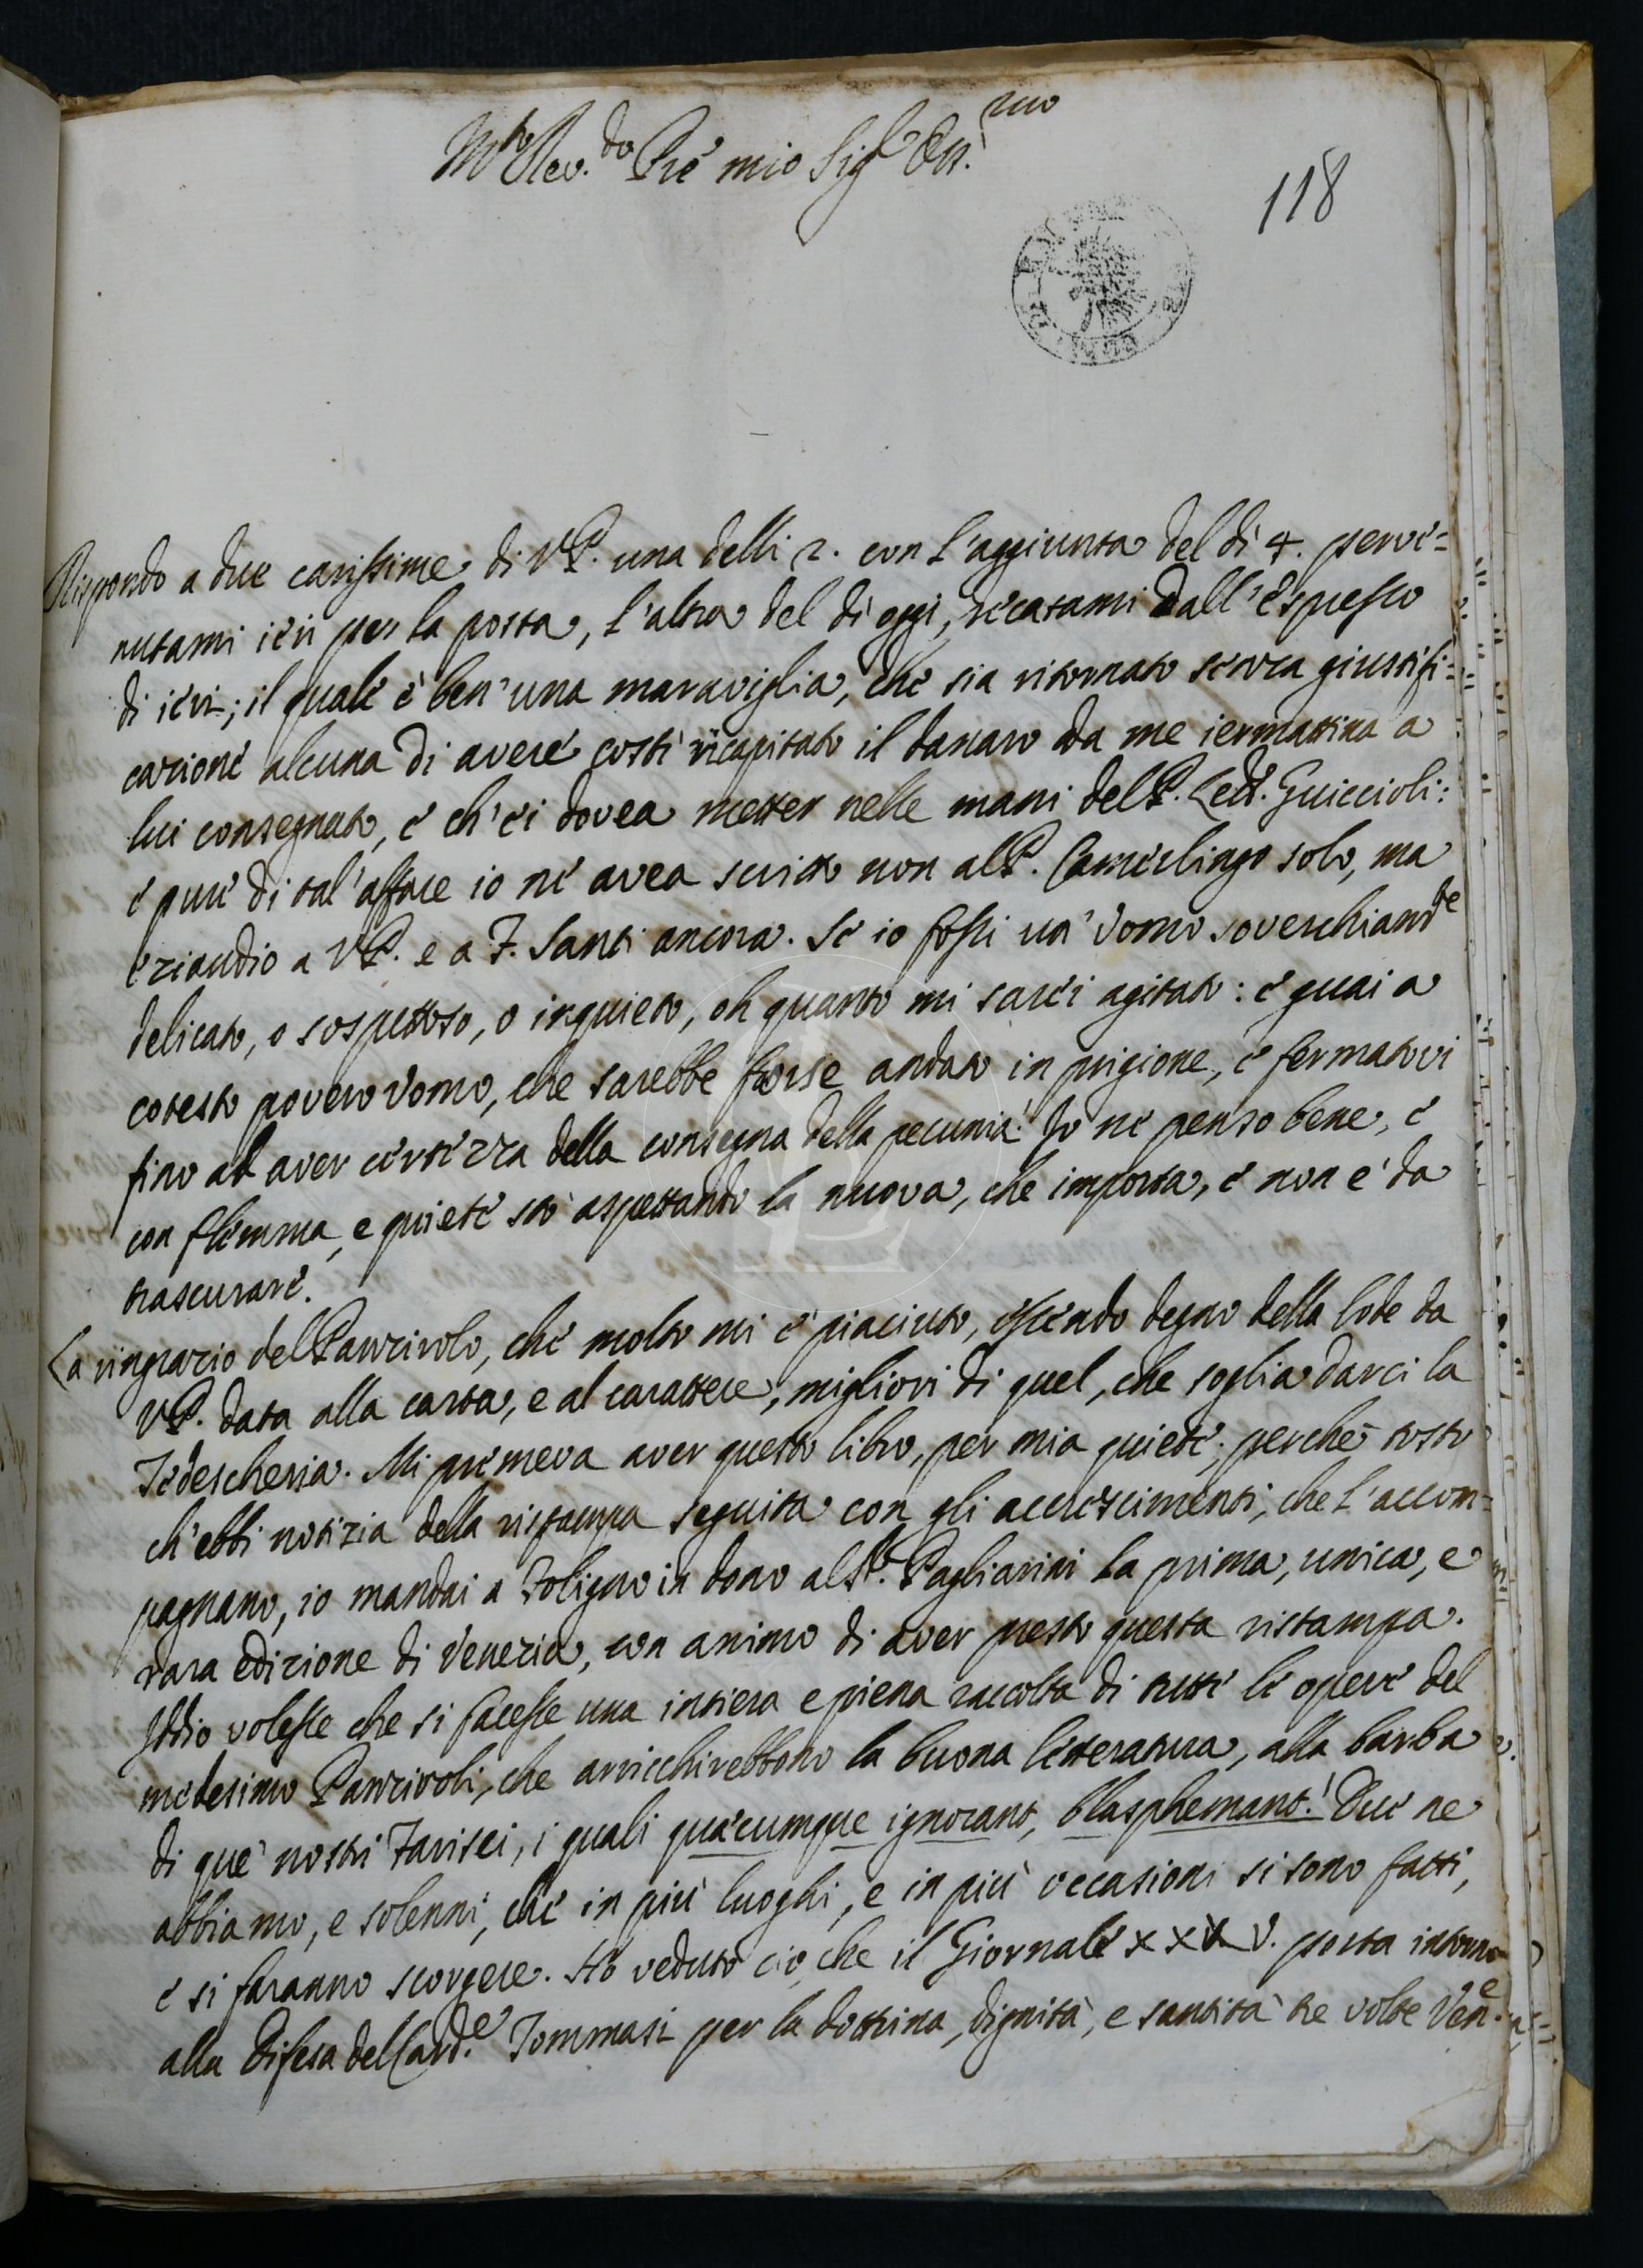 M.to Rev.do P.re mio Sig.r On.mo
118
Rispondo a due carissime di V.P. una delli 2. con l'aggiunta del dì 4. perve=
nutami ieri per la posta, l'altra del dì oggi, recatami dall'espresso
di ieri; il quale è ben'una maraviglia, che sia ritornato senza giustifi=
cazione alcuna di avere costì ricapitato il danaro da me iermattina a
lui consegnato, e ch'ei dovea metter nelle mani del P. Lett. Guiccioli:
e pure di tal'affare io ne avea scritto non al P. Camerlingo solo, ma
eziandio a V.P. e a F. Santi ancora. Se io fossi un'Vomo soverchiam.te
delicato, o sospettoso, o inquieto, oh quanto mi sarei agitato: e guai a
cotesto povero Vomo, che sarebbe forse andato in prigione, e fermatovi
fino ad aver certezza della consegna della pecunia. Io ne penso bene, e
con flemma, e quiete stò aspettando la nuova, che importa, e non è da
trascurare.
La ringrazio del Panzirolo, che molto mi è piaciuto, essendo degno della lode da
V.P. data alla carta, e al carattere, migliori di quel, che soglia darci la
Tedescheria. Mi premeva aver questo libro, per mia quiete; perchè tosto
ch'ebbi notizia della ristampa seguita con gli accrescimenti, che l'accom=
pagnano, io mandai a Foligno in dono al Sr. Pagliarini la prima, unica, e
rara edizione di Venezia, con animo di aver presto questa ristampa.
Iddio volesse che si facesse una intiera e piena raccolta di tutte le opere del
medesimo Panziroli, che arricchirebbono la buona letteratura, alla barba
di que' nostri Farisei, i quali quæcumque ignorant, blasphemant! Due ne
abbiamo, e solenni, che in più luoghi, e in più occasioni si sono fatti,
e si faranno scorgere. Hò veduto ciò, che il Giornale XXXV. porta intorno
alla Difesa del Card.e Tommasi per la dottrina, dignità, e santità tre volte Ven.e